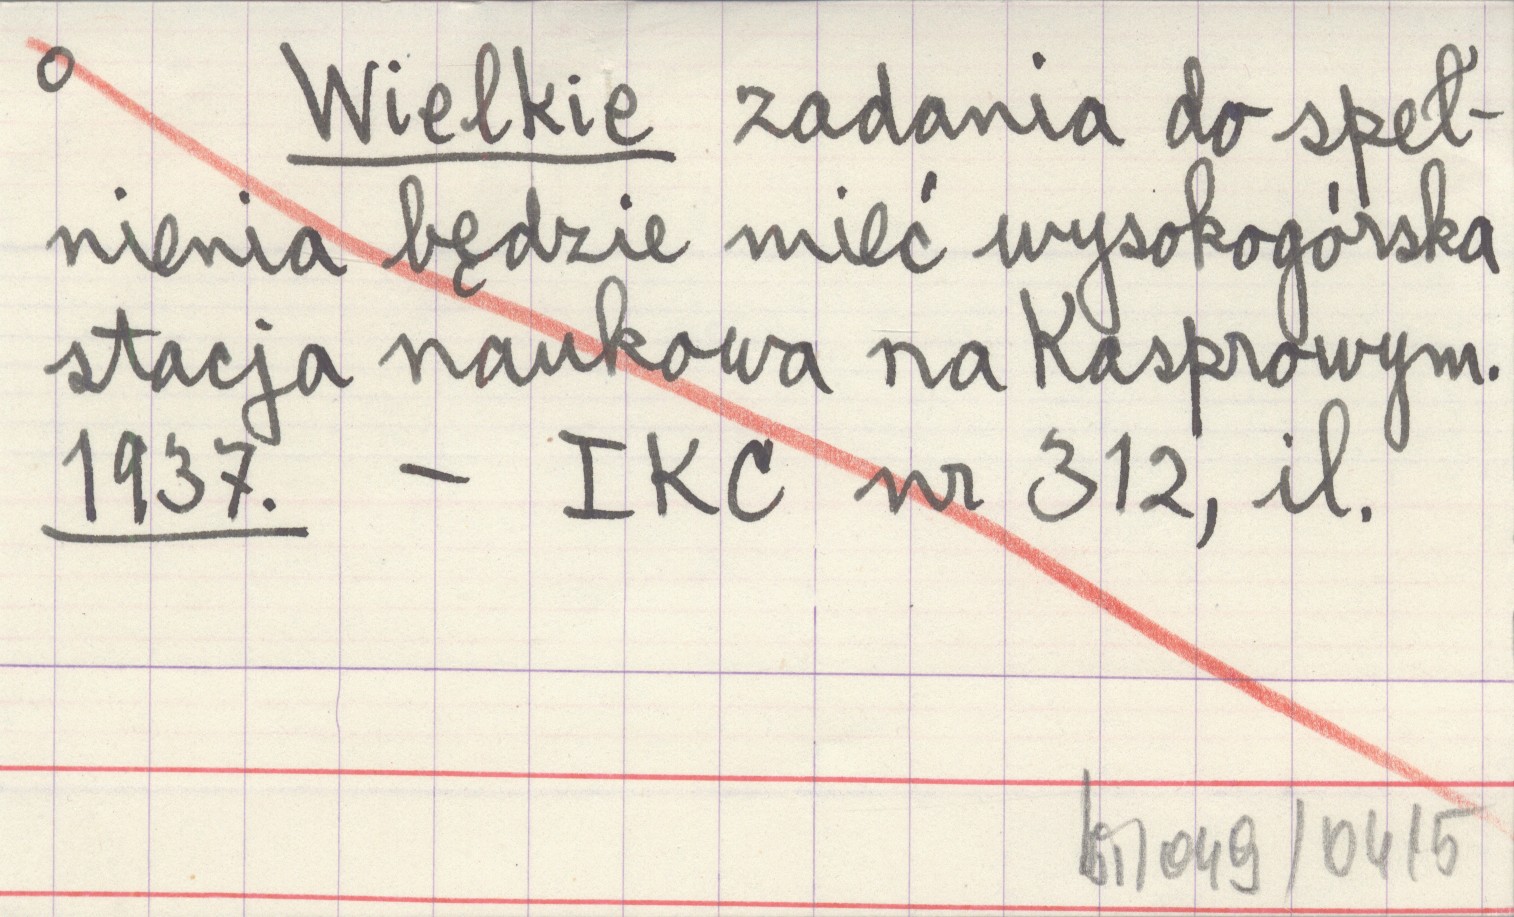 o Wielkie zadania do speł-
nienia będzie mieć wysokogórska
stacja naukowa na Kasprowym.
1937. – IKC nr 312, il.
049/0415